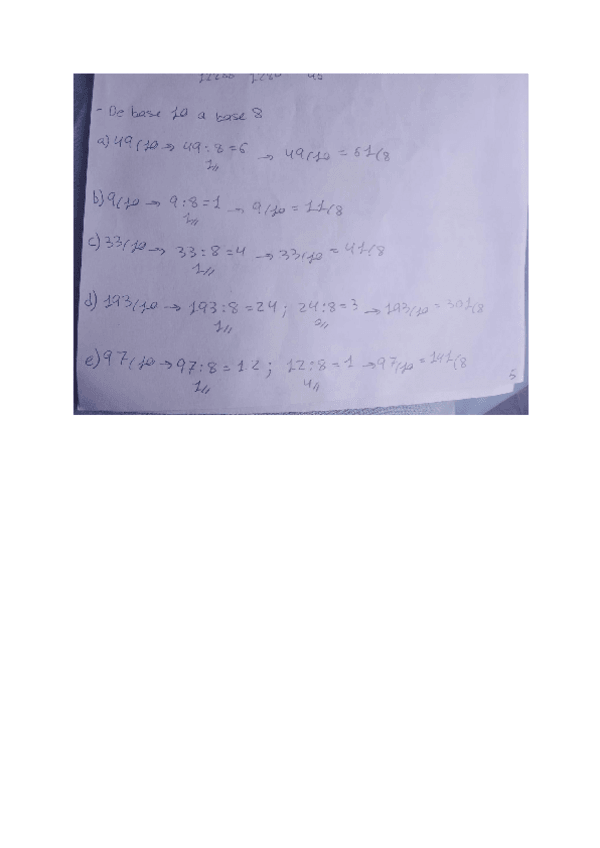 - De base 10 a base 8
a) 49(10 → 49:8=6 → 49(10 = 61(8
1//
b) 9(10 → 9:8=1 → 9(10 = 11(8
1//
c) 33(10 → 33:8=4 → 33(10 = 41(8
1//
d) 193(10 → 193:8=24; 24:8=3 → 193(10 = 301(8
1// 0//
e) 97(10 → 97:8=12; 12:8=1 → 97(10 = 141(8
1// 4//
5